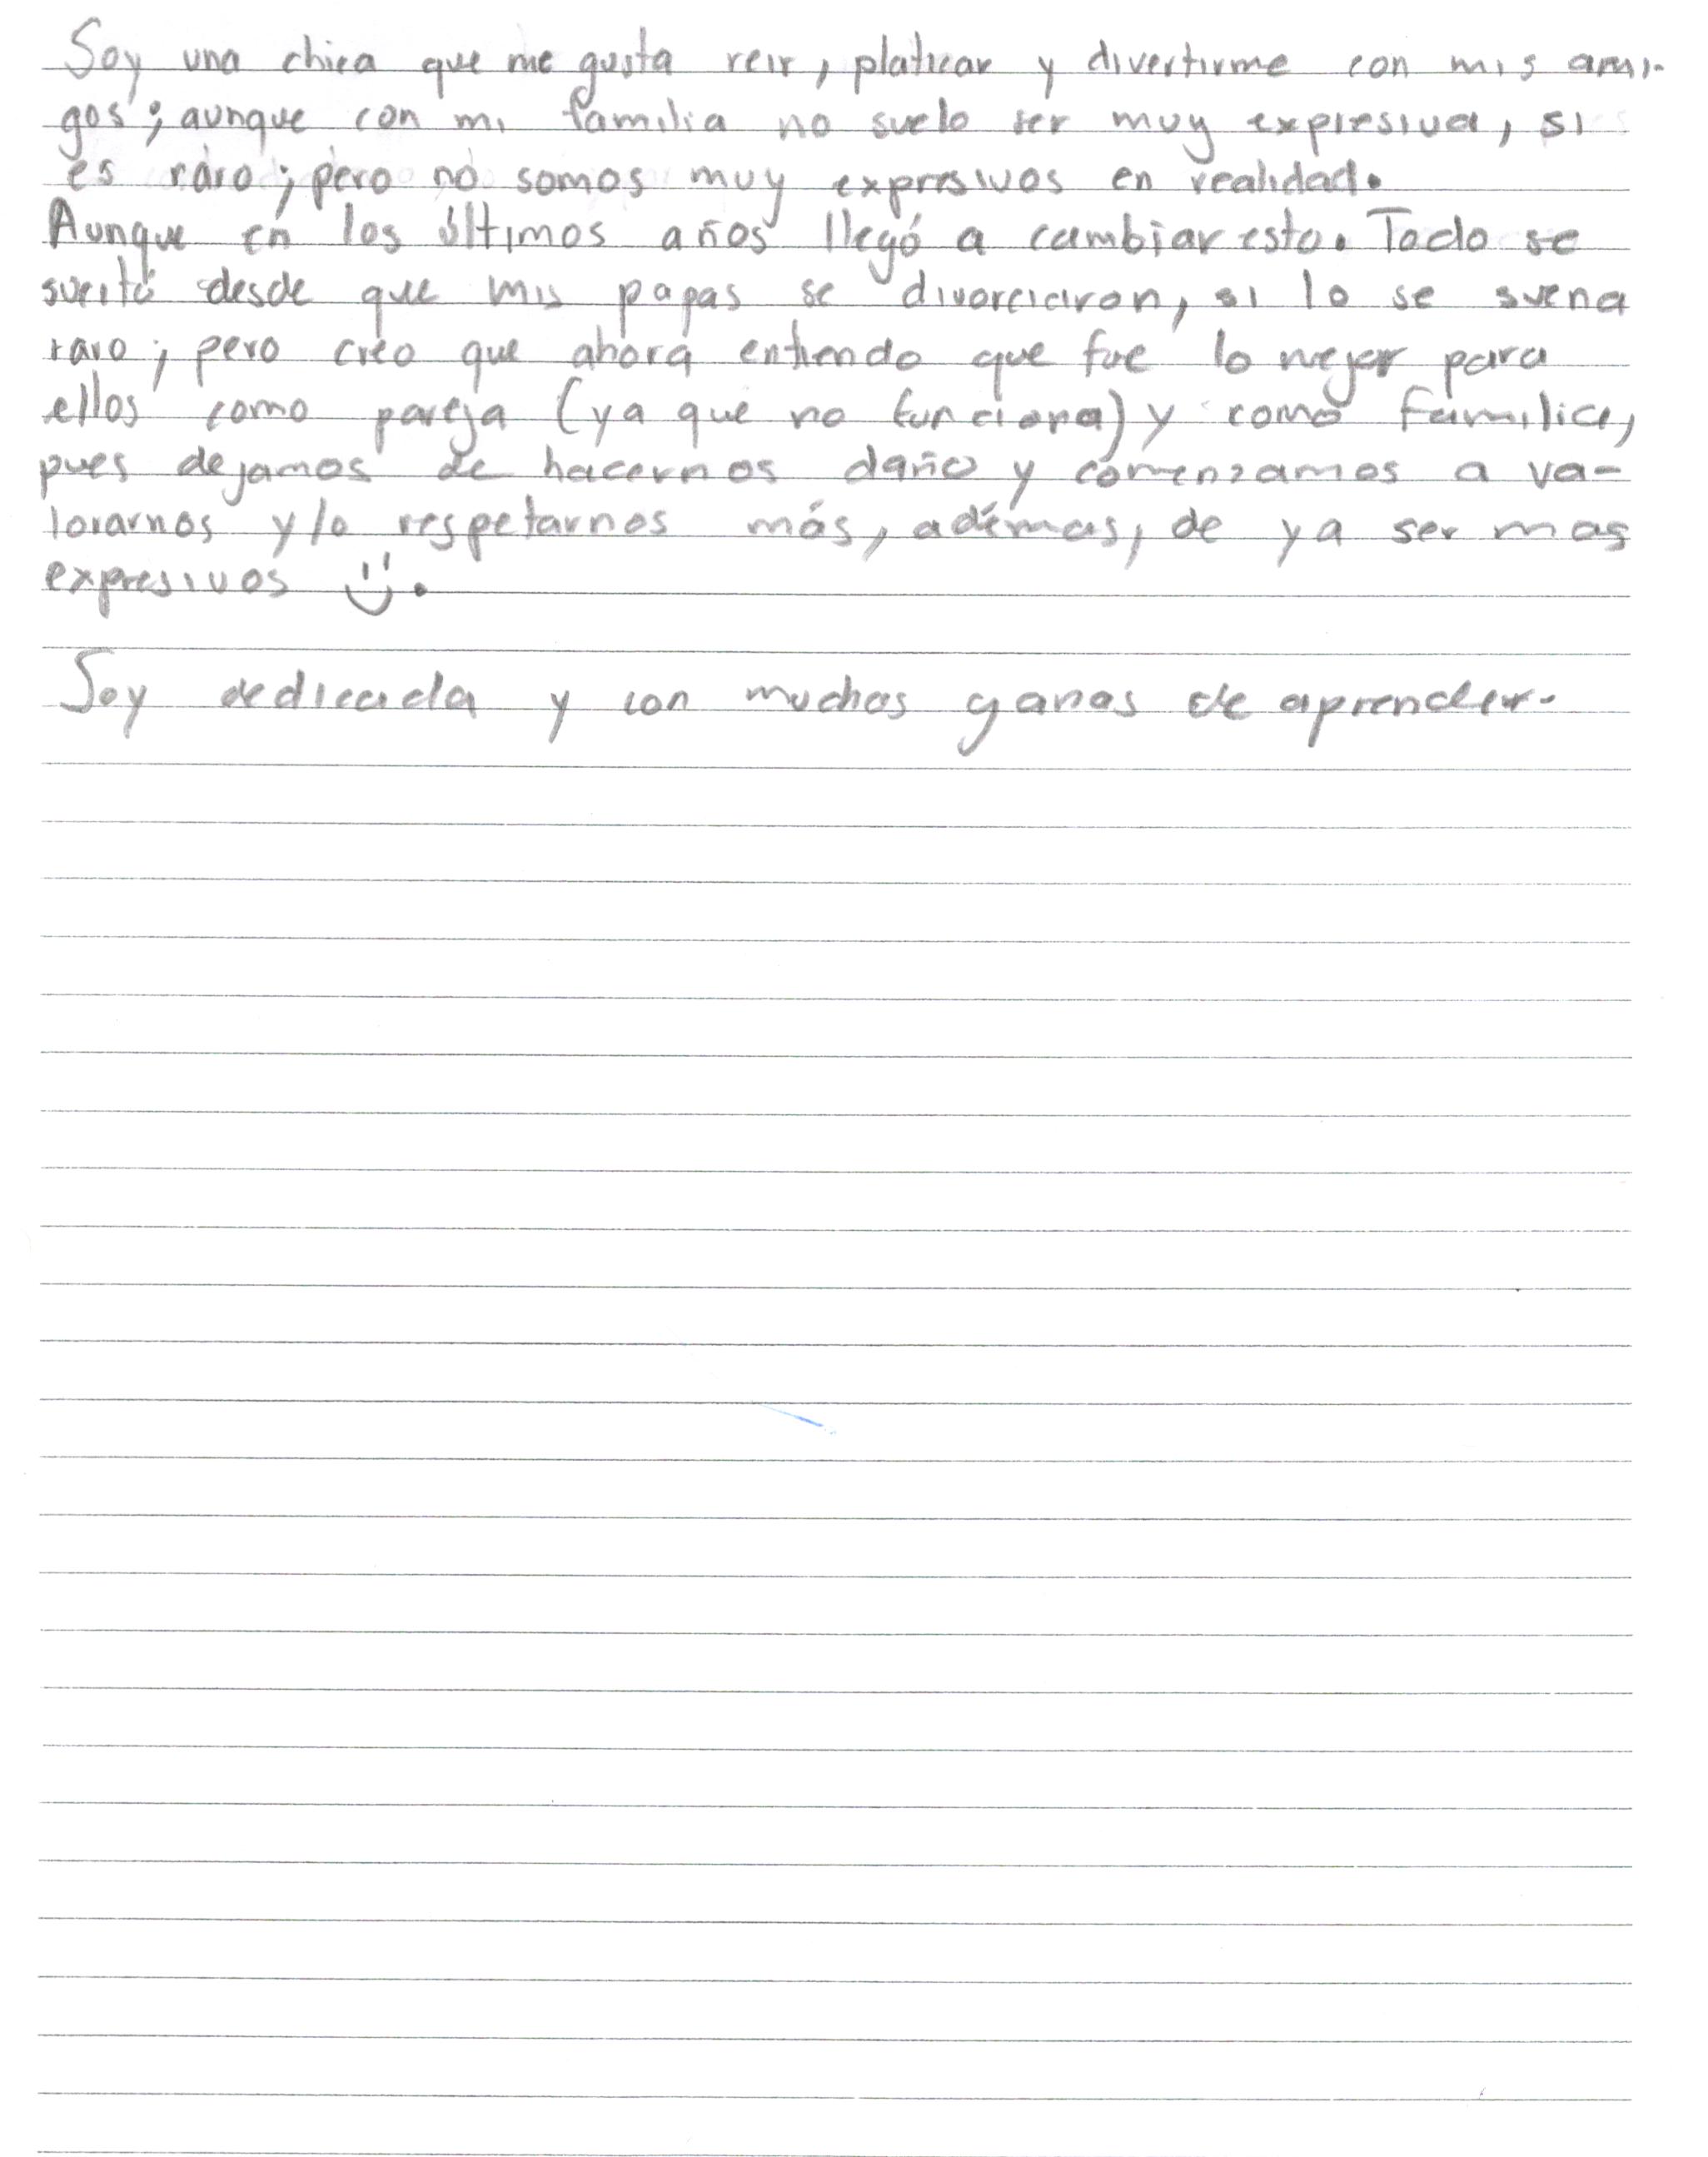 Soy una chica que me gusta reir, platicar y divertirme con mis ami-
gos; aunque con mi familia no suelo ser muy expresiva, si
es raro; pero no somos muy expresivos en realidad.
Aunque en los últimos años llegó a cambiar esto. Todo se
desde que mis papas se divorciaron, si lo se suena
raro; pero creo que ahora entiendo que fue lo mejor para
ellos como pareja (ya que no funciona) y como familia,
pues dejamos de hacernos daño y comenzamos a va-
lorarnos y/o respetarnos más, además, de ya ser mas
expresivos.
Soy dedicada y con muchas ganas de aprender.